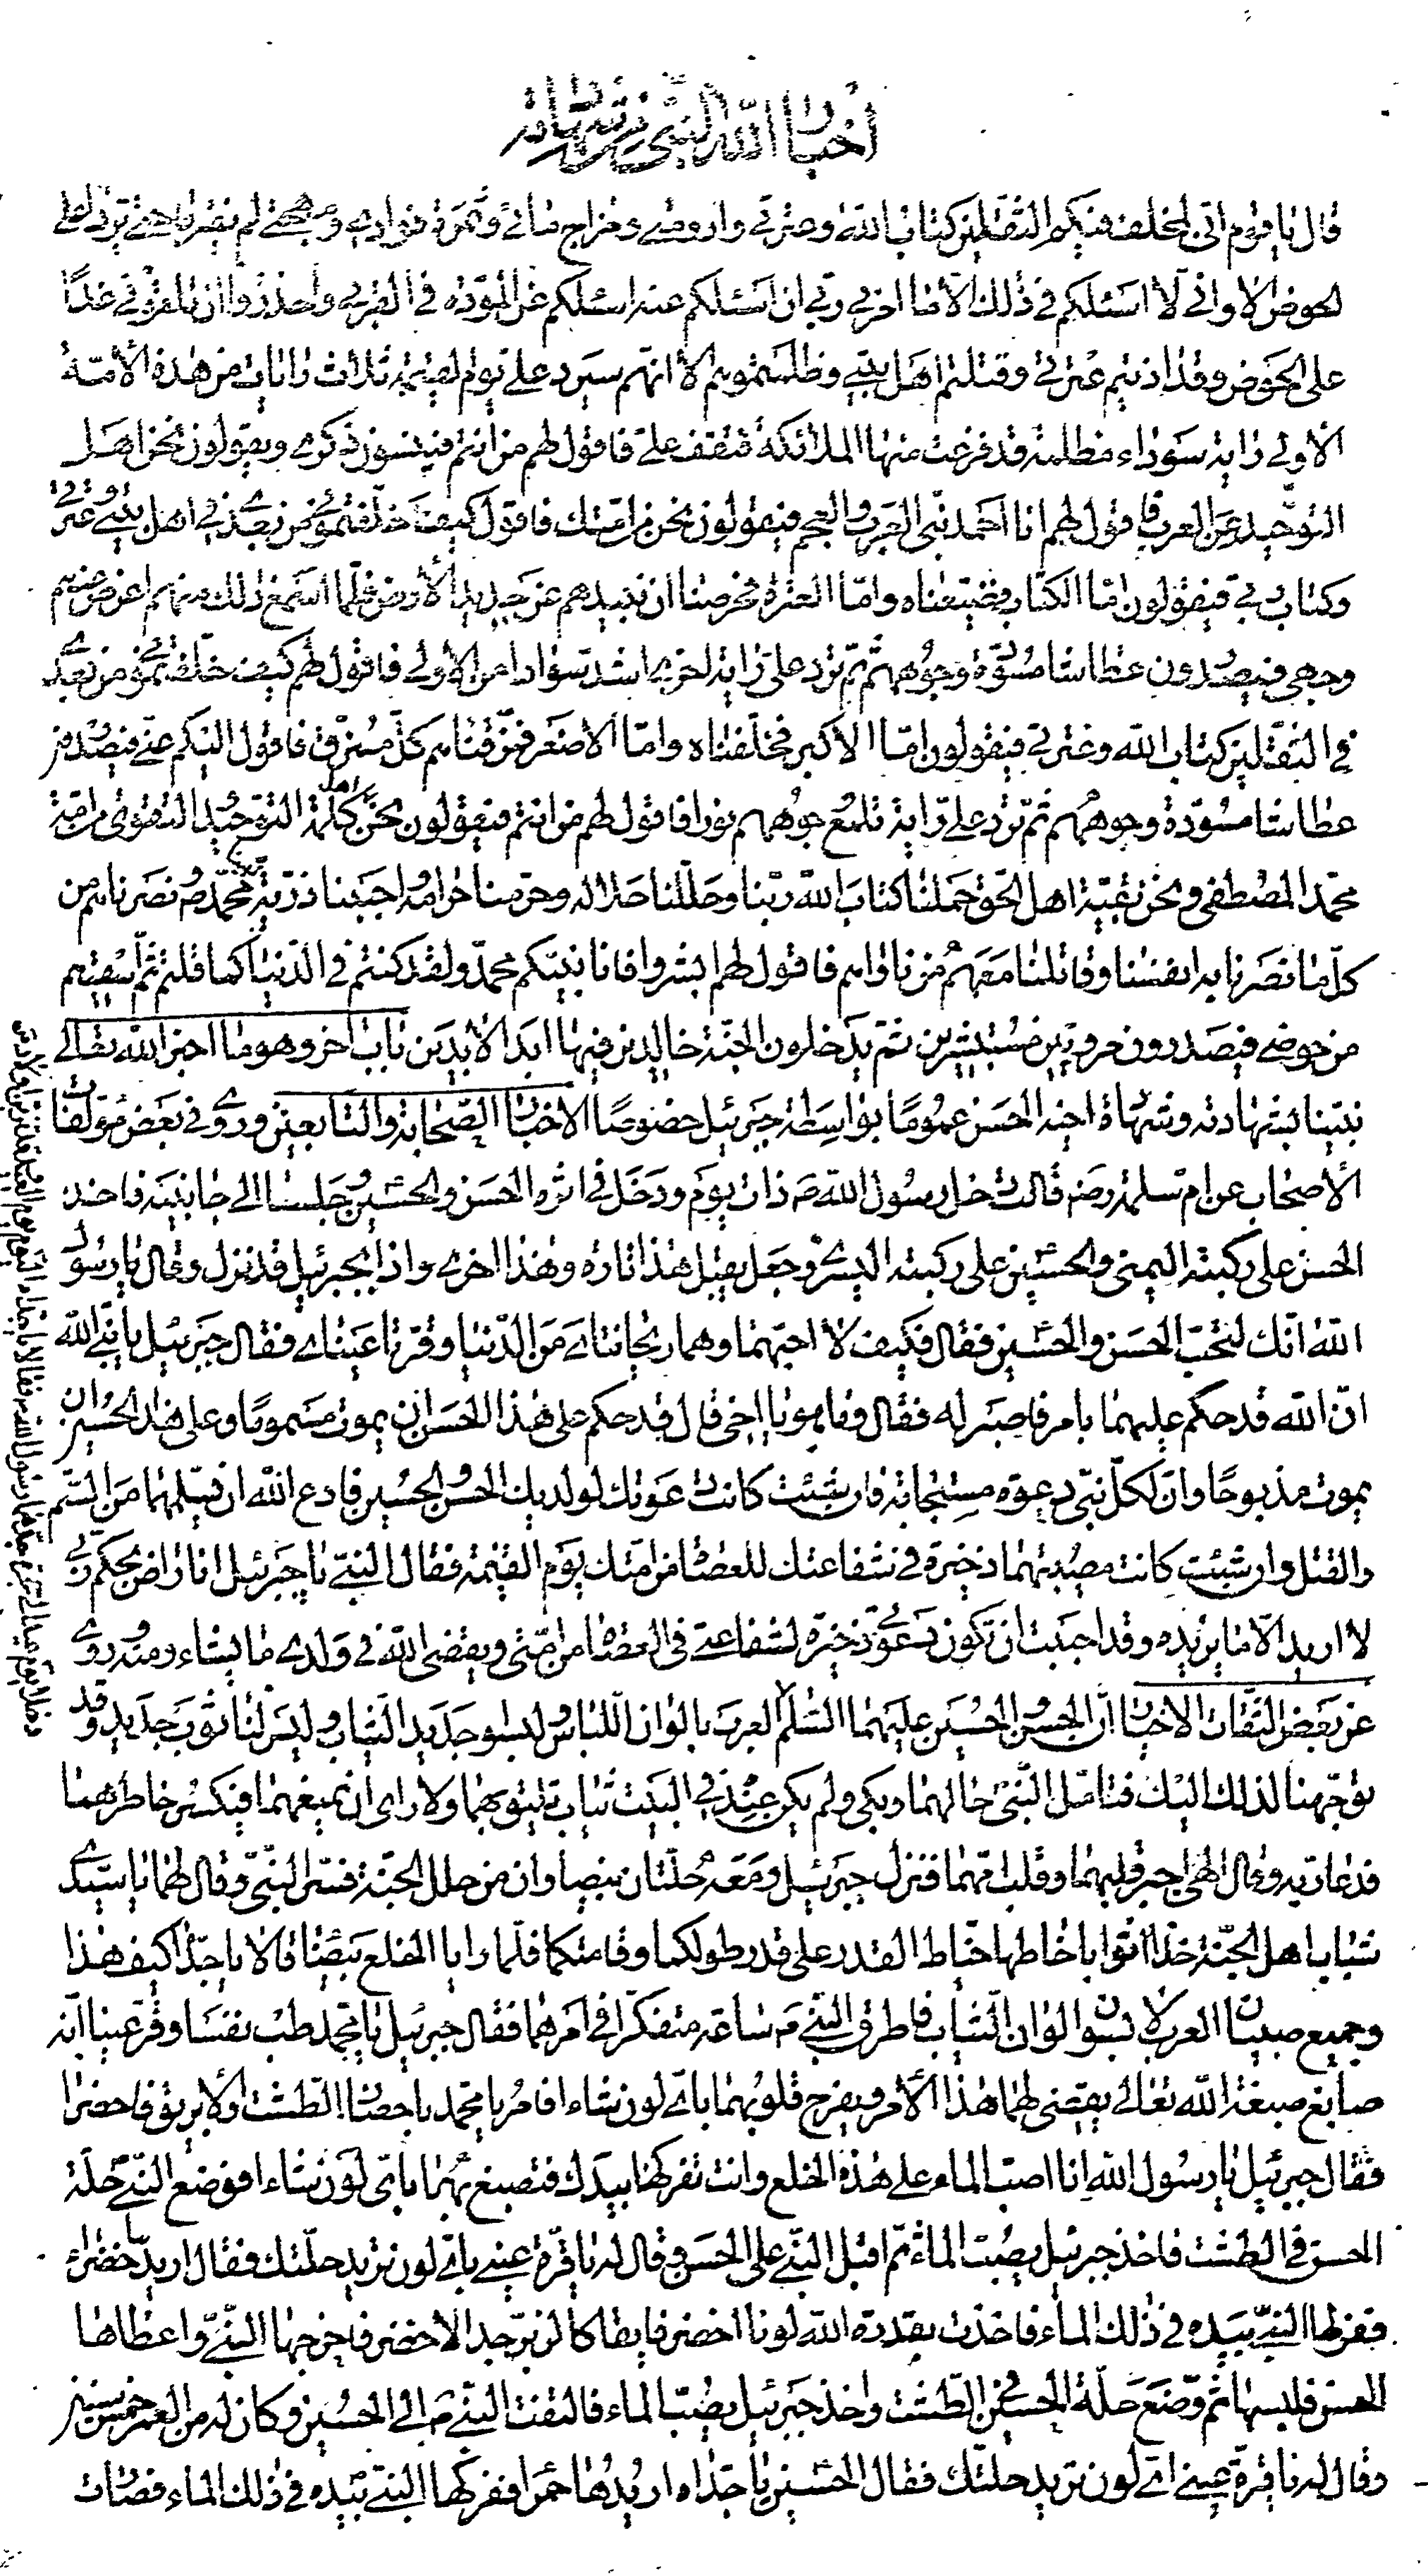 اخبار الله النبی بشهادته
قال یا قوم انی مخلف فیکم الثقلین کتاب الله وعترتی وارومتی ومزاج مائی وثمرة فؤادی ومهجتی لم یفترقا حتی تردا علی
الحوض الا وانی لا اسئلکم فی ذلک الا ما امرنی ربی ان اسئلکم عنه اسئلکم عن المودة فی القربی واحذروا ان تلقونی غدًا
علی الحوض وقد اذیتم عترتی وقتلتم اهل بیتی وظلمتموهم الا انهم سیرد علی یوم القیمة ثلاث رایات من هذه الامة
الاولی رایة سوداء مظلمة قد فزعت منها الملائکة فتقف علی فاقول لهم من انتم فینسون ذکری ویقولون نحن اهل
التوحید من العرب فاقول لهم انا احمد نبی العرب والعجم فیقولون نحن من امتک فاقول کیف خلفتمونی من بعدی فی اهل بیتی وعترتی
وکتاب ربی فیقولون اما الکتاب فضیعناه واما العترة فحرصنا ان نبیدهم عن جدید الارض فلما اسمع ذلک منهم اعرض عنهم
وجهی فیصدرون عطاشا مسودة وجوههم ثم ترد علی رایة اخری اشد سوادا من الاولی فاقول لهم کیف خلفتمونی من بعدی
فی الثقلین کتاب الله وعترتی فیقولون اما الاکبر فخالفناه واما الاصغر فمزقناهم کل ممزق فاقول الیکم عنی فیصدرون
عطاشا مسودة وجوههم ثم ترد علی رایة تلمع وجوههم نورا فاقول لهم من انتم فیقولون نحن اهل کلمة التوحید التقوی من امة
محمد المصطفی ونحن بقیة اهل الحق حملنا کتاب الله ربنا وحللنا حلاله وحرمنا حرامه واحببنا ذریة محمد ص ونصرناهم من
کل ما نصرنا به انفسنا وقاتلنا معهم من ناواهم فاقول لهم ابشروا فانا نبیکم محمد ولقد کنتم فی الدنیا کما قلتم ثم اسقیهم
من حوضی فیصدرون مرویین مستبشرین ثم یدخلون الجنة خالدین فیها ابد الابدین باب اخر وهو ما اخبر الله تعالی
نبینا بشهادته وشهادة اخیه الحسن عمومًا بواسطة جبرئیل خصوصًا الاخبار الصحابة والتابعین وروی فی بعض مؤلفات
الاصحاب عن ام سلمة رض قالت دخل رسول الله ص ذات یوم ودخل فی اثره الحسن والحسین وجلسا الی جانبیه فاخذ
الحسن علی رکبته الیمنی والحسین علی رکبته الیسری وجعل یقبل هذا تارة وهذا اخری واذا بجبرئیل قد نزل وقال یا رسول
الله انک لتحب الحسن والحسین فقال فکیف لا احبهما وهما ریحانتای من الدنیا وقرتا عینای فقال جبرئیل یا نبی الله
ان الله قد حکم علیهما بامر فاصبر له فقال وما هو یا اخی قال قد حکم علی هذا الحسن ان یموت مسمومًا وعلی هذا الحسین ان
یموت مذبوحًا وان لکل نبی دعوة مستجابة فان شئت کانت دعوتک لولدیک الحسن والحسین فادع الله ان یسلمهما من السم
والقتل وان شئت کانت مصیبتهما ذخیرة فی شفاعتک للعصاة من امتک یوم القیمة فقال النبی یا جبرئیل انا راض بحکم ربی
لا ارید الا ما یریده وقد احببت ان تکون دعوتی ذخیرة لشفاعتی فی العصاة من امتی ویقضی الله فی ولدی ما یشاء ومنه روی
عن بعض الثقات الاخیار ان الحسن والحسین علیهما السلم العرب بالوان اللباس ولبسوا جدید الثیاب ولیس لنا ثوب جدید وقد
توجهنا لذلک الیک فتامل النبی حالهما وبکی ولم یکن عنده فی البیت ثیاب تلیق بهما ولا رای ان یمنعهما فینکسر خاطرهما
فدعا ربه وقال الهی اجبر قلبهما وقلب امهما فنزل جبرئیل ومعه حلتان بیضاوان من حلل الجنة فسر النبی وقال لهما یا سیدی
شباب اهل الجنة خذا اثوابا خاطها خیاط القدر علی قدر طولکما وقامتکما فلما رایا الخلع بیضا قالا یا جدا کیف هذا
وجمیع صبیان العرب لابسون الوان الثیاب فاطرق النبی ص ساعة متفکرا فی امرهما فقال جبرئیل یا محمد طب نفسا وقر عینا انه
صابغ صبغة الله تعالی یقضی لهما هذا الامر ویفرح قلوبهما بای لون شاءا فامر یا محمد باحضار الطشت والابریق فاحضرا
فقال جبرئیل یا رسول الله انا اصب الماء علی هذه الخلع وانت تفرکها بیدک فتصبغ بهما بای لون شاءا فوضع النبی حلة
الحسن فی الطشت فاخذ جبرئیل یصب الماء ثم اقبل النبی علی الحسن وقال له یا قرة عینی بای لون ترید حلتک فقال اریدها خضراء
ففرکها النبی بیده فی ذلک الماء فاخذت بقدرة الله لونا اخضر فایقا کالزبرجد الاخضر فاخرجها النبی واعطاها
الحسن فلبسها ثم وضع حلة الحسین فی الطشت واخذ جبرئیل یصب الماء فالتفت النبی ص الی الحسین وکان له من العمر خمس سنین
وقال له یا قرة عینی ای لون ترید حلتک فقال الحسین یا جداه اریدها حمرا ففرکها النبی بیده فی ذلک الماء فصارت